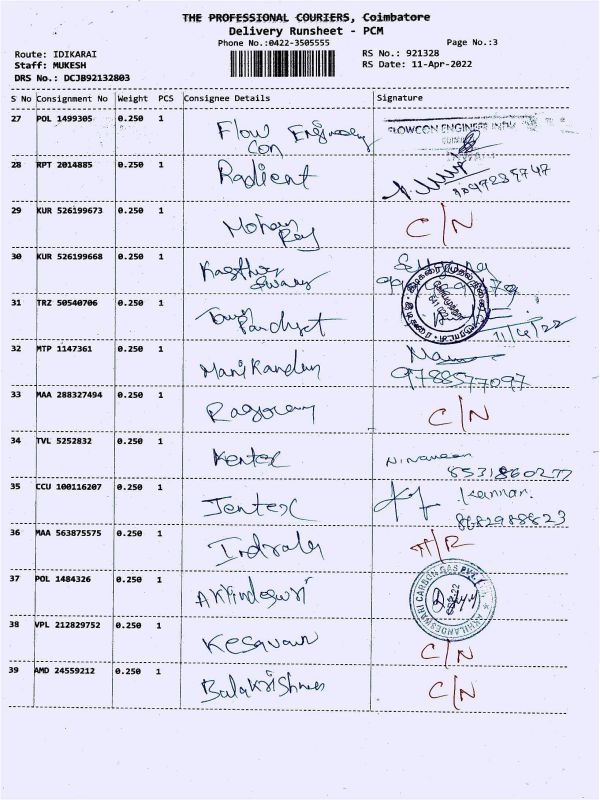 THE PROFESSIONAL COURIERS, Coimbatore
Delivery Runsheet - PCM
Phone No.:0422-3505555 Page No.:3
Route: IDIKARAI RS No.: 921328
Staff: MUKESH RS Date: 11-Apr-2022
DRS No.: DCJB92132803
S No Consignment No Weight PCS Consignee Details Signature
27 POL 1499305 0.250 1 Flow Engineering FLOWCON ENGINEERS
Con
28 RPT 2014885 0.250 1 Radient
29 KUR 526199673 0.250 1 Mohan C/N
Raj
30 KUR 526199668 0.250 1 Kasthuri
Swamy
31 TRZ 50540706 0.250 1 Town 641 022
Panchyet 11/4/22
32 MTP 1147361 0.250 1 Manikandan
9788577097
33 MAA 288327494 0.250 1 C/N
34 TVL 5252832 0.250 1 Kentex N.Naveen
8531860277
35 CCU 100116207 0.250 1 Jentex Kannan.
8682988823
36 MAA 563875575 0.250 1 Indrala
37 POL 1484326 0.250 1 Akilindeswri AKHILANDESWARI CARBON GAS PVT.
38 VPL 212829752 0.250 1 Kesavan C/N
39 AMD 24559212 0.250 1 Balakrishnan C/N